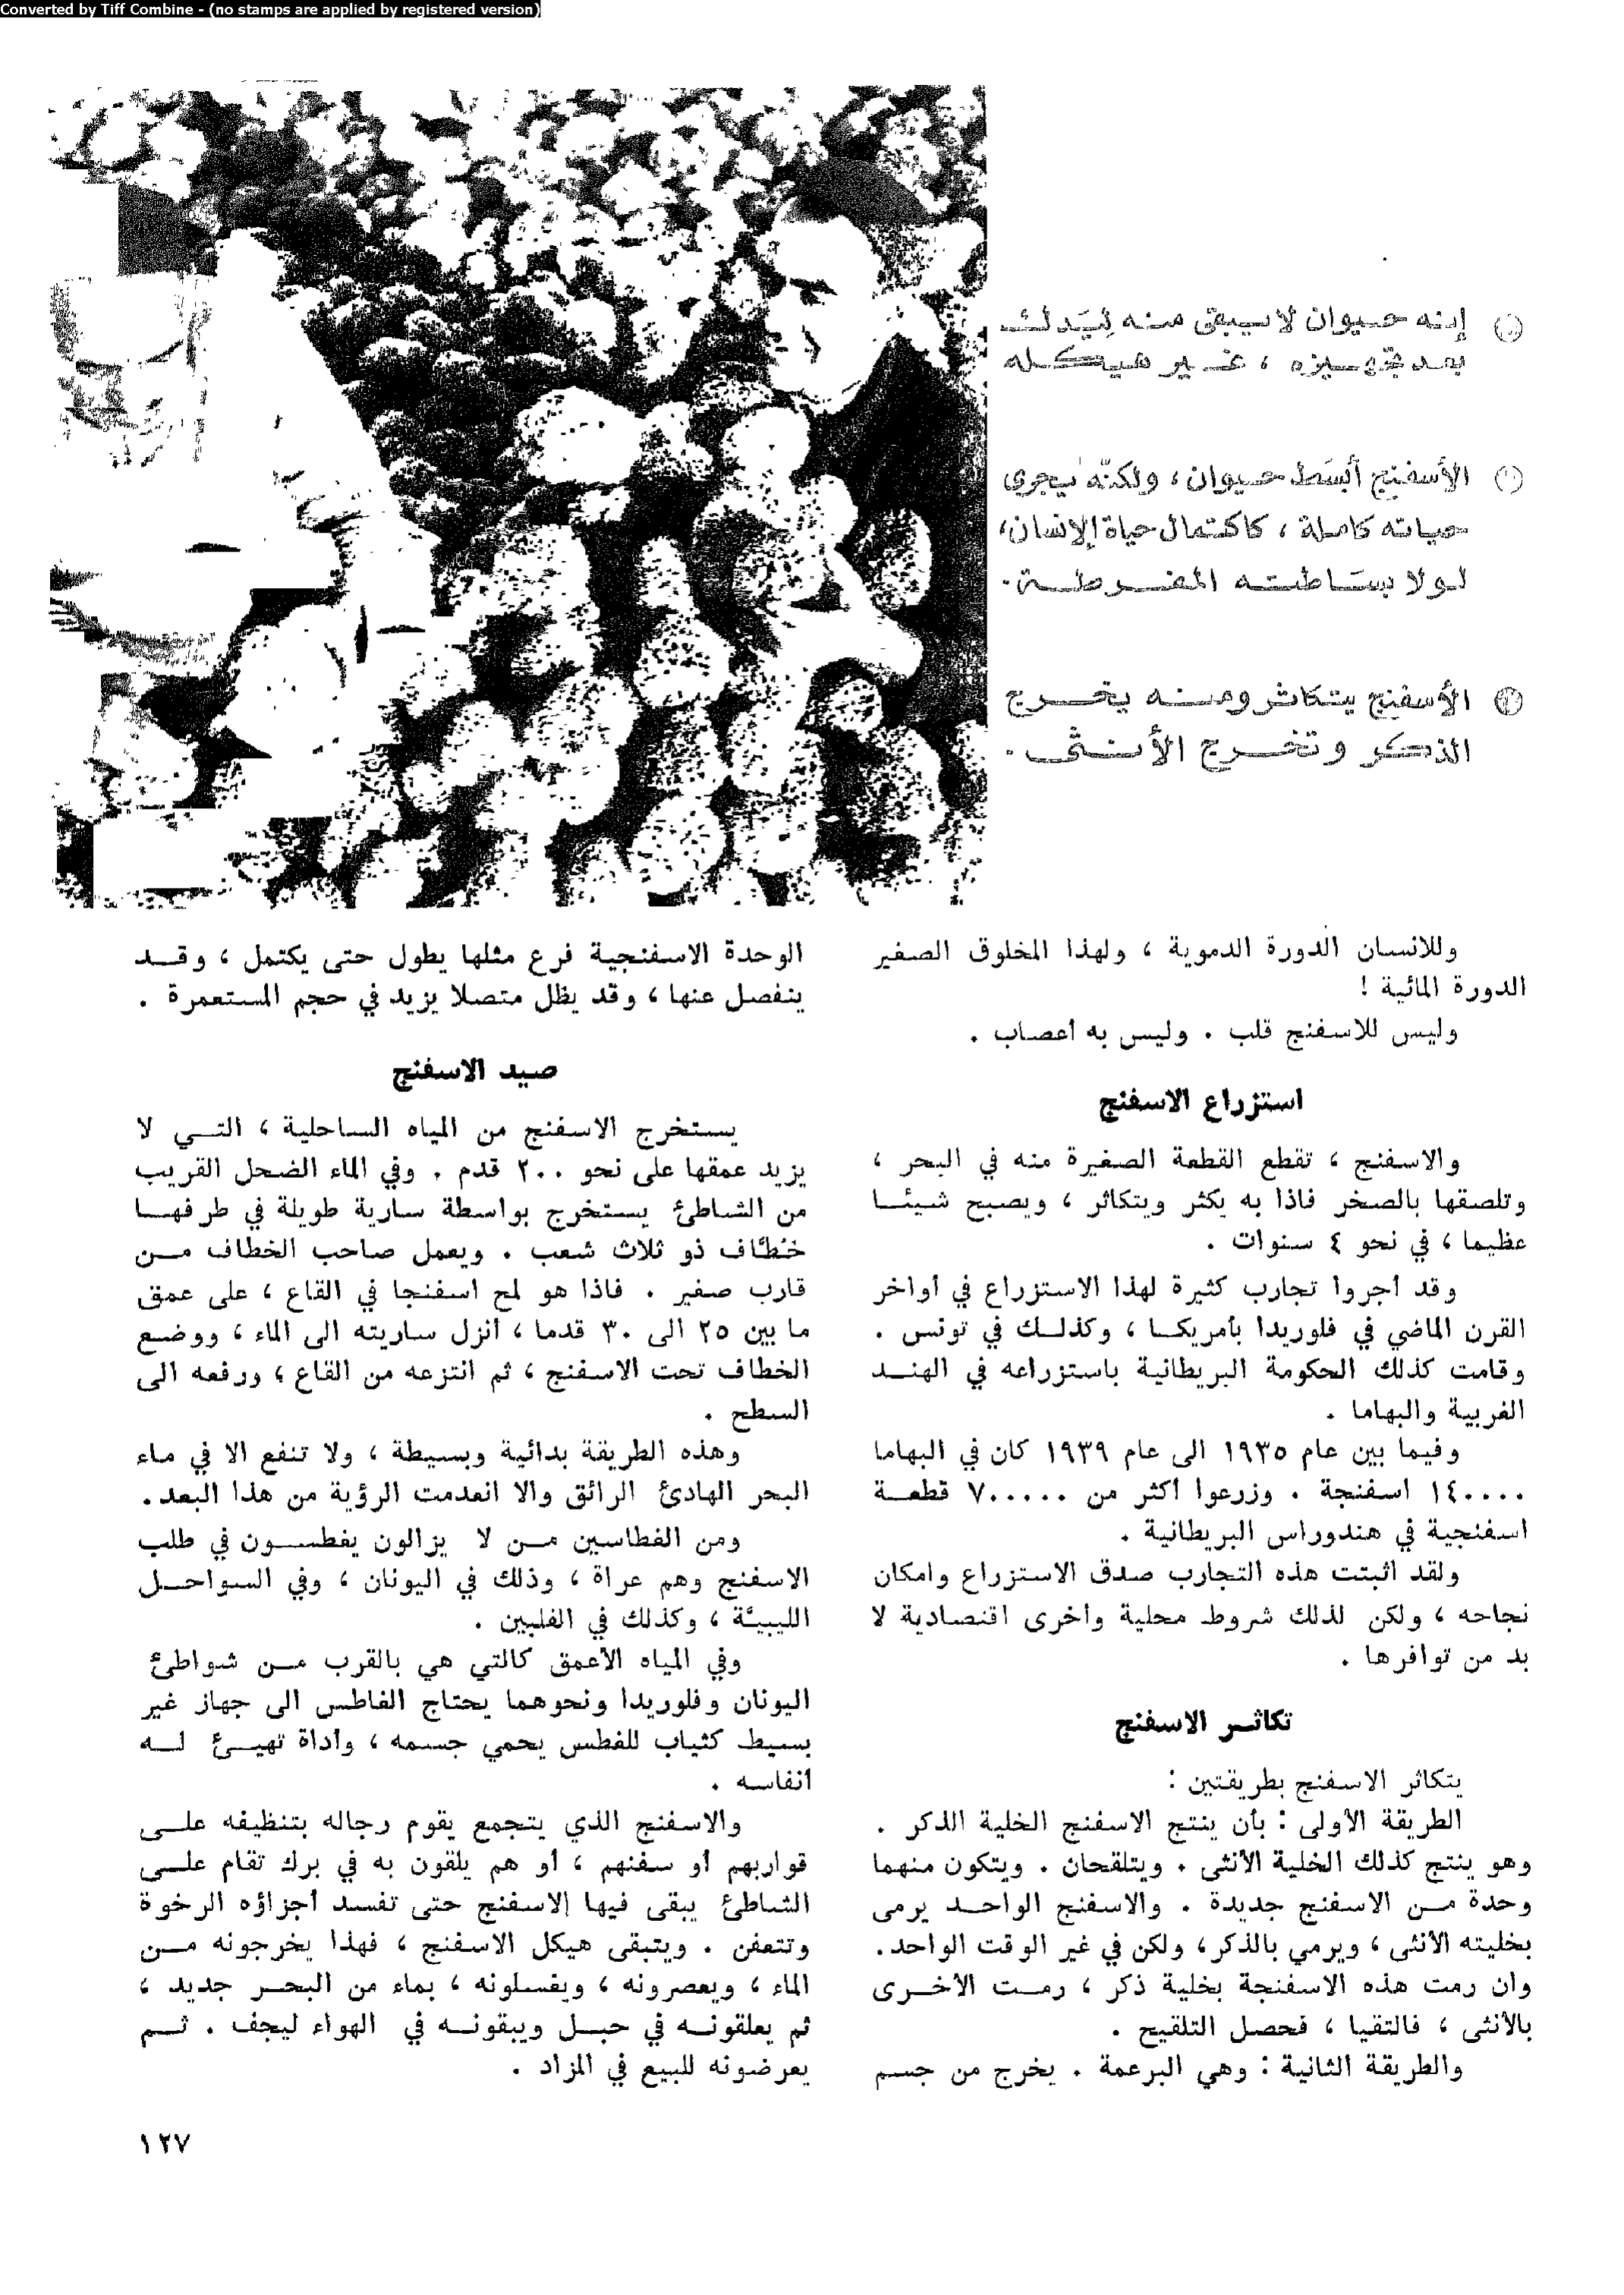 Converted by Tiff Combine - (no stamps are applied by registered version)
إنه حيوان لا يبقى منه ليدلك
بعد تجهيزه ، غير هيكله
الأسفنج أبسَط حيوان ، ولكنّه يجرى
حياته كاملة ، كاكتمال حياة الإنسان،
لولا بسَاطته المفرطة .
الأسفنج يتكاثر ومنه يخرج
الذكر وتخرج الأنثى .
وللانسان الدورة الدموية ، ولهذا المخلوق الصغير
الدورة المائية !
وليس للاسفنج قلب . وليس به أعصاب .
استزراع الاسفنج
والاسفنج ، تقطع القطعة الصغيرة منه في البحر ،
وتلصقها بالصخر فاذا به يكثر ويتكاثر ، ويصبح شيئا
عظيما ، في نحو ٤ سنوات .
وقد أجروا تجارب كثيرة لهذا الاستزراع في أواخر
القرن الماضي في فلوريدا بأمريكا ، وكذلك في تونس .
وقامت كذلك الحكومة البريطانية باستزراعه في الهند
الغربية والبهاما .
وفيما بين عام ١٩٣٥ الى عام ١٩٣٩ كان في البهاما
١٤٠٠٠٠ اسفنجة . وزرعوا أكثر من ٧٠٠٠٠٠ قطعة
اسفنجية في هندوراس البريطانية .
ولقد اثبتت هذه التجارب صدق الاستزراع وامكان
نجاحه ، ولكن لذلك شروط محلية وأخرى اقتصادية لا
بد من توافرها .
تكاثر الاسفنج
يتكاثر الاسفنج بطريقتين :
الطريقة الأولى : بأن ينتج الاسفنج الخلية الذكر .
وهو ينتج كذلك الخلية الأنثى . ويتلقحان . ويتكون منهما
وحدة من الاسفنج جديدة . والاسفنج الواحد يرمى
بخليته الأنثى ، ويرمي بالذكر ، ولكن في غير الوقت الواحد .
وان رمت هذه الاسفنجة بخلية ذكر ، رمت الأخرى
بالأنثى ، فالتقيا ، فحصل التلقيح .
والطريقة الثانية : وهي البرعمة . يخرج من جسم
الوحدة الاسفنجية فرع مثلها يطول حتى يكتمل ، وقد
ينفصل عنها ، وقد يظل متصلا يزيد في حجم المستعمرة .
صيد الاسفنج
يستخرج الاسفنج من المياه الساحلية ، التي لا
يزيد عمقها على نحو ٢٠٠ قدم . وفي الماء الضحل القريب
من الشاطئ يستخرج بواسطة سارية طويلة في طرفها
خُطّاف ذو ثلاث شعب . ويعمل صاحب الخطاف من
قارب صغير . فاذا هو لمح اسفنجا في القاع ، على عمق
ما بين ٢٥ الى ٣٠ قدما ، أنزل ساريته الى الماء ، ووضع
الخطاف تحت الاسفنج ، ثم انتزعه من القاع ، ورفعه الى
السطح .
وهذه الطريقة بدائية وبسيطة ، ولا تنفع الا في ماء
البحر الهادئ الرائق والا انعدمت الرؤية من هذا البعد .
ومن الغطاسين من لا يزالون يغطسون في طلب
الاسفنج وهم عراة ، وذلك في اليونان ، وفي السواحل
الليبيّة ، وكذلك في الفلبين .
وفي المياه الأعمق كالتي هي بالقرب من شواطئ
اليونان وفلوريدا ونحوهما يحتاج الغاطس الى جهاز غير
بسيط كثياب للغطس يحمي جسمه ، وأداة تهيئ له
أنفاسه .
والاسفنج الذي يتجمع يقوم رجاله بتنظيفه على
قواربهم أو سفنهم ، أو هم يلقون به في برك تقام على
الشاطئ يبقى فيها الاسفنج حتى تفسد أجزاؤه الرخوة
وتتعفن . ويتبقى هيكل الاسفنج ، فهذا يخرجونه من
الماء ، ويعصرونه ، ويغسلونه ، بماء من البحر جديد ،
ثم يعلقونه في حبل ويبقونه في الهواء ليجف . ثم
يعرضونه للبيع في المزاد .
١٢٧